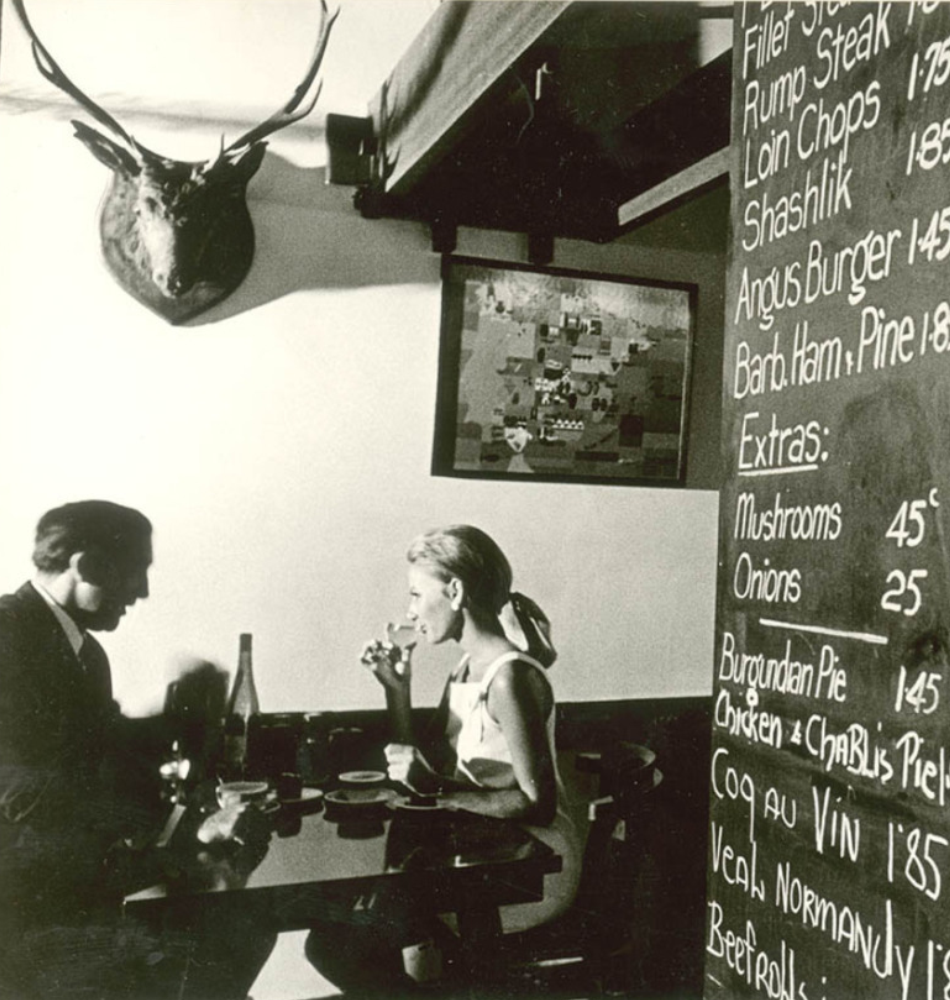 Fillet Steak
Rump Steak 1.75
Loin Chops 1.85
Shashlik
Angus Burger 1.45
Barb. Ham & Pine 1.8
Extras:
Mushrooms 45c
Onions 25
Burgundian Pie 1.45
Chicken & CHABLis Pie
COQ AU ViN 1.85
VEAL NORMANDY 1
Beef rolls